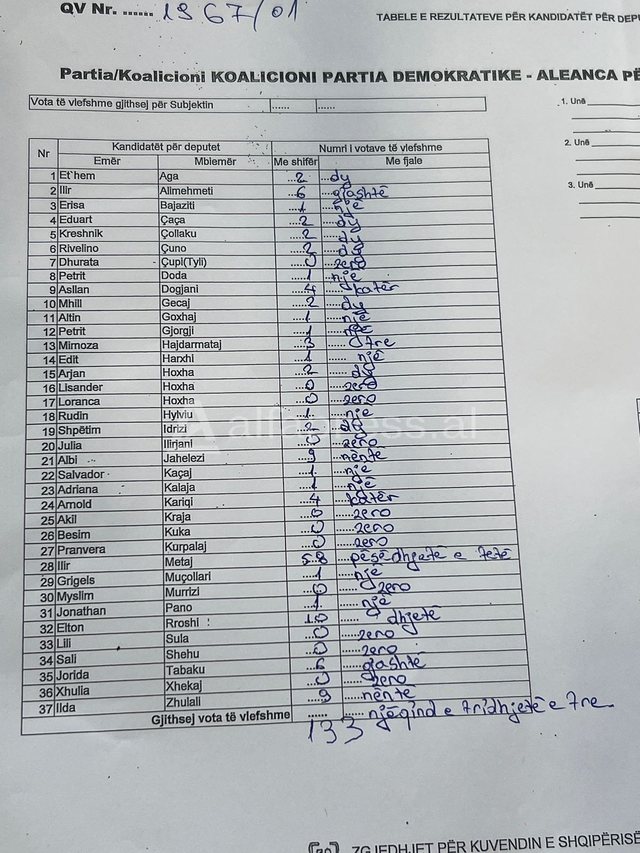 QV Nr. ...... 1967/01
TABELE E REZULTATEVE PËR KANDIDATËT PËR DEPU
Partia/Koalicioni KOALICIONI PARTIA DEMOKRATIKE - ALEANCA PË
Vota të vlefshme gjithsej për Subjektin ...... ......
1. Unë
2. Unë
3. Unë
Nr Kandidatët për deputet Numri i votave të vlefshme
Emër Mbiemër Me shifër Me fjale
1 Et`hem Aga 2 dy
2 Ilir Alimehmeti 6 gjashtë
3 Erisa Bajaziti 1 një
4 Eduart Çaça 2 dy
5 Kreshnik Çollaku 2 dy
6 Rivelino Çuno 2 dy
7 Dhurata Çupi(Tyli) 0 zero
8 Petrit Doda 1 një
9 Asllan Dogjani 4 katër
10 Mhill Gecaj 2 dy
11 Altin Goxhaj 1 një
12 Petrit Gjorgji 1 një
13 Mimoza Hajdarmataj 3 tre
14 Edit Harxhi 1 një
15 Arjan Hoxha 2 dy
16 Lisander Hoxha 0 zero
17 Loranca Hoxha 0 zero
18 Rudin Hylviu 1 një
19 Shpëtim Idrizi 2 dy
20 Julia Ilirjani 0 zero
21 Albi Jahelezi 9 nëntë
22 Salvador Kaçaj 1 një
23 Adriana Kalaja 1 një
24 Arnold Kariqi 4 katër
25 Akil Kraja 0 zero
26 Besim Kuka 0 zero
27 Pranvera Kurpalaj 0 zero
28 Ilir Metaj 58 pësëdhjetë e tetë
29 Grigels Muçollari 1 një
30 Myslim Murrizi 0 zero
31 Jonathan Pano 1 një
32 Elton Rroshi 10 dhjetë
33 Lili Sula 0 zero
34 Sali Shehu 0 zero
35 Jorida Tabaku 6 gjashtë
36 Xhulia Xhekaj 0 zero
37 Ilda Zhulali 9 nëntë
Gjithsej vota të vlefshme ...... njëqind e tridhjetë e tre
133
alfapress.al
ZGJEDHJET PËR KUVENDIN E SHQIPËRISË